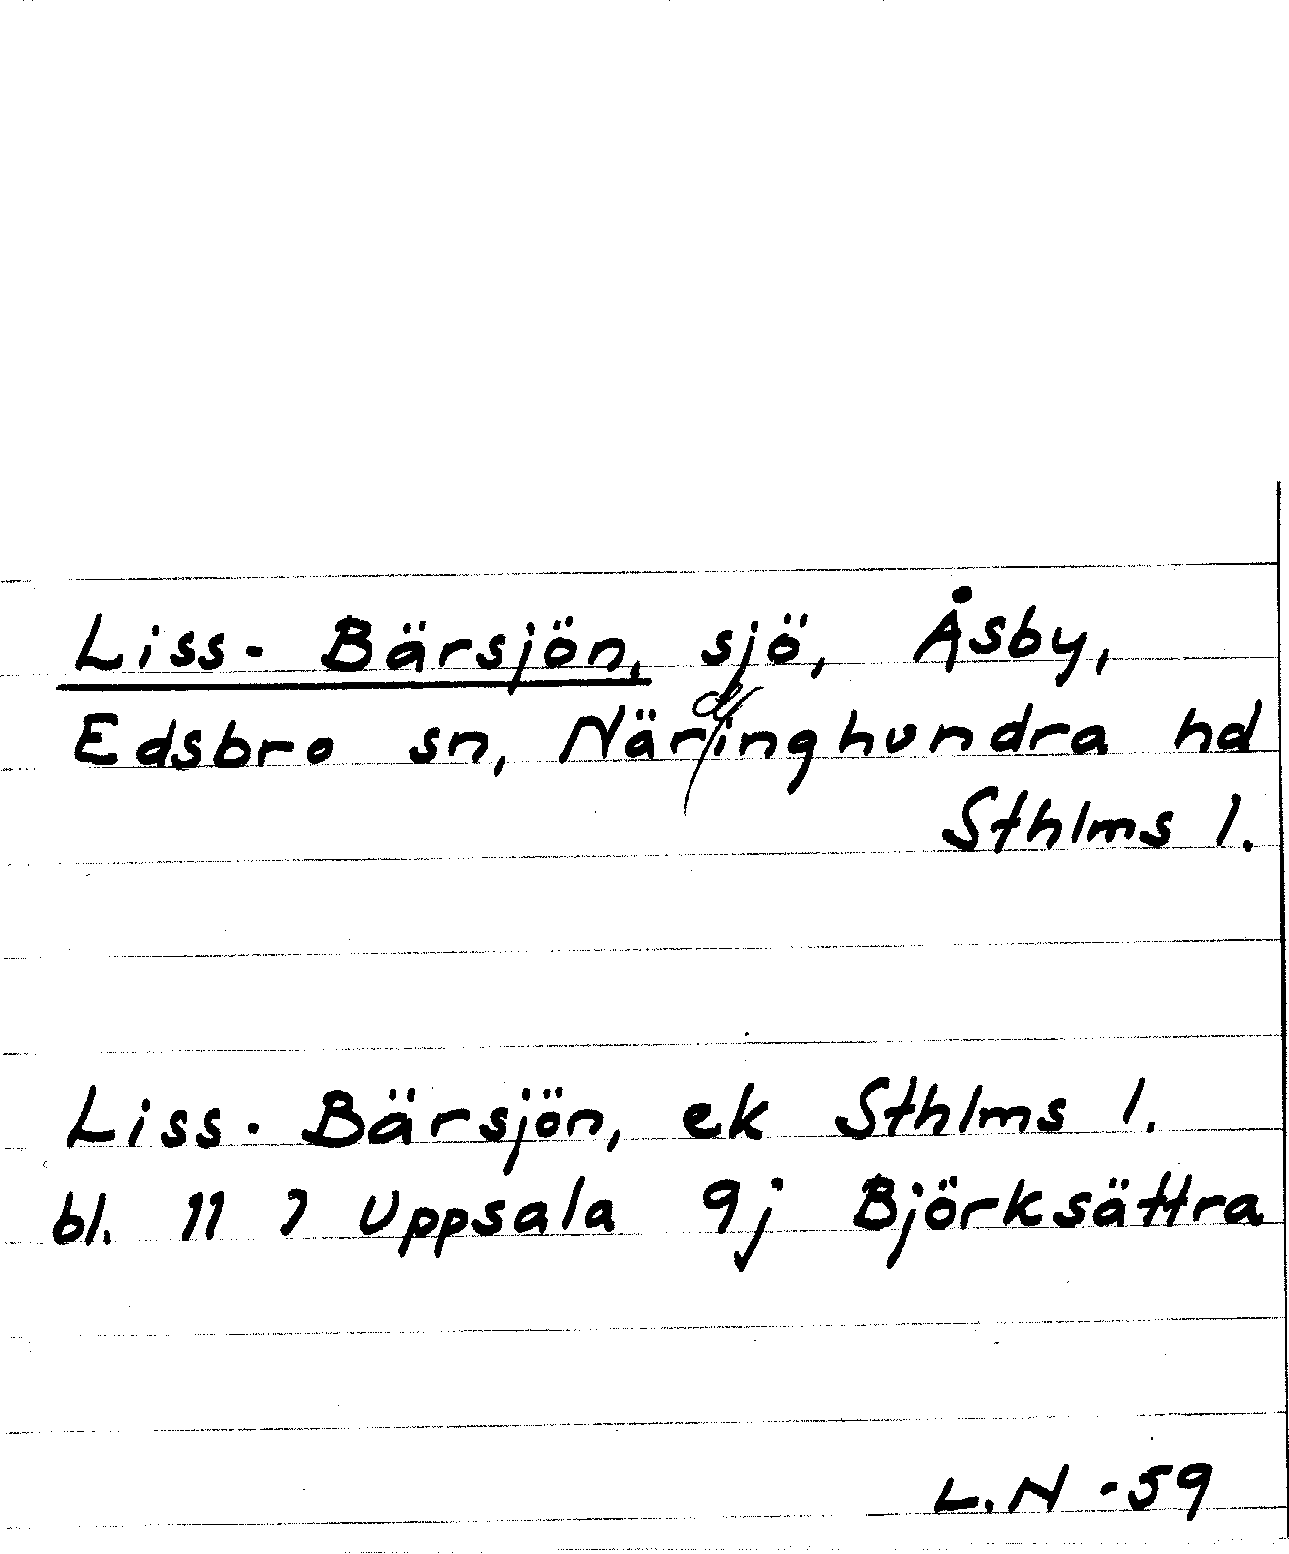 Liss- Bärsjön, sjö, Åsby,
Edsbro sn, Näringhundra hd
Sthlms l.
Liss- Bärsjön, ek Sthlms l.
bl. 11 I Uppsala 9j Björksättra
L.N -59